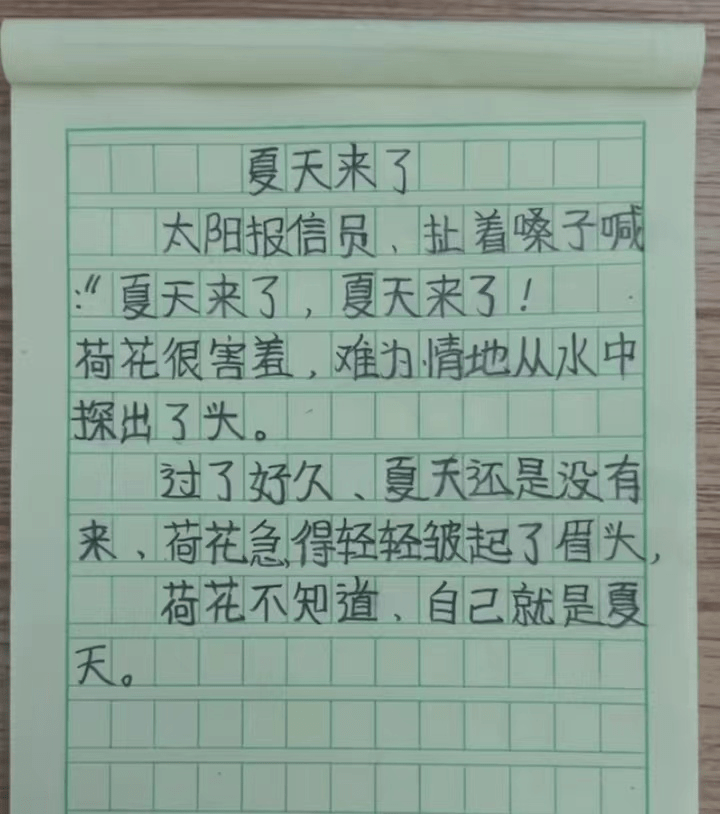 夏天来了
太阳报信员、扯着嗓子喊
:“夏天来了，夏天来了！
荷花很害羞，难为情地从水中
探出了头。
过了好久、夏天还是没有
来、荷花急得轻轻皱起了眉头，
荷花不知道、自己就是夏
天。